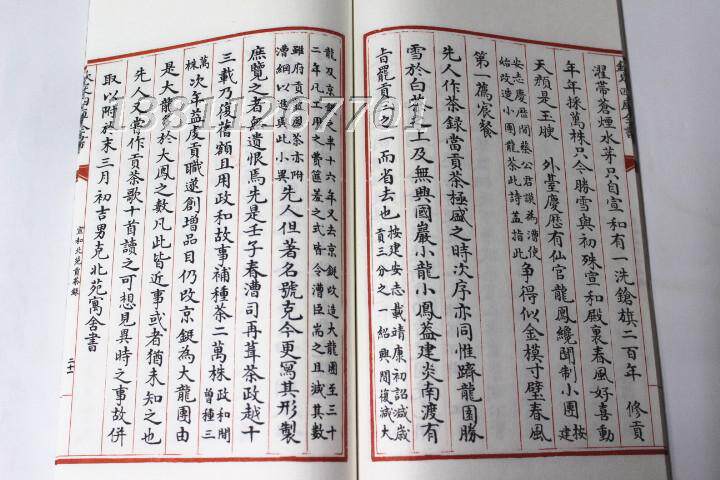 灌帶蒼煙水芽只自宣和有一洗鎗旗二百年 修貢
年年採萬株只今勝雪與初殊宣和殿裏春風好喜動
天顏是玉腴 外臺慶厯有仙官龍鳳纔聞制小團按建
安志慶厯間蔡公君謨為漕使
始改造小團龍茶此詩蓋指此
爭得似金模寸璧春風
第一薦宸餐
先人作茶錄當貢茶極盛之時次序亦同惟躋龍團勝
雪於白茶之上及無興國巖小龍小鳳蓋建炎南渡有
旨罷貢三之一而省去也
按建安志載靖康初詔減歲
貢三分之一紹興間復減大
龍及京鋌之半十六年又去京鋌改造大龍團至三十
二年凡工用之費篚羞之式皆令漕臣耑之且減其數
雖府貢龍鳳茶亦附
漕綱以進與此小異
先人但著名號克今更寫其形製
庶覽之者無遺恨焉先是壬子春漕司再葺茶政越十
三載乃復舊額且用政和故事補種茶二萬株
政和間
曾種三
萬株
次年益虔貢職遂創增品目仍改京鋌為大龍團由
是大龍多於大鳳之數凡此皆近事或者猶未知之也
先人又嘗作貢茶歌十首讀之可想見異時之事故併
取以附於末三月初吉男克北苑寓舍書
宣和北苑貢茶錄
13811207701